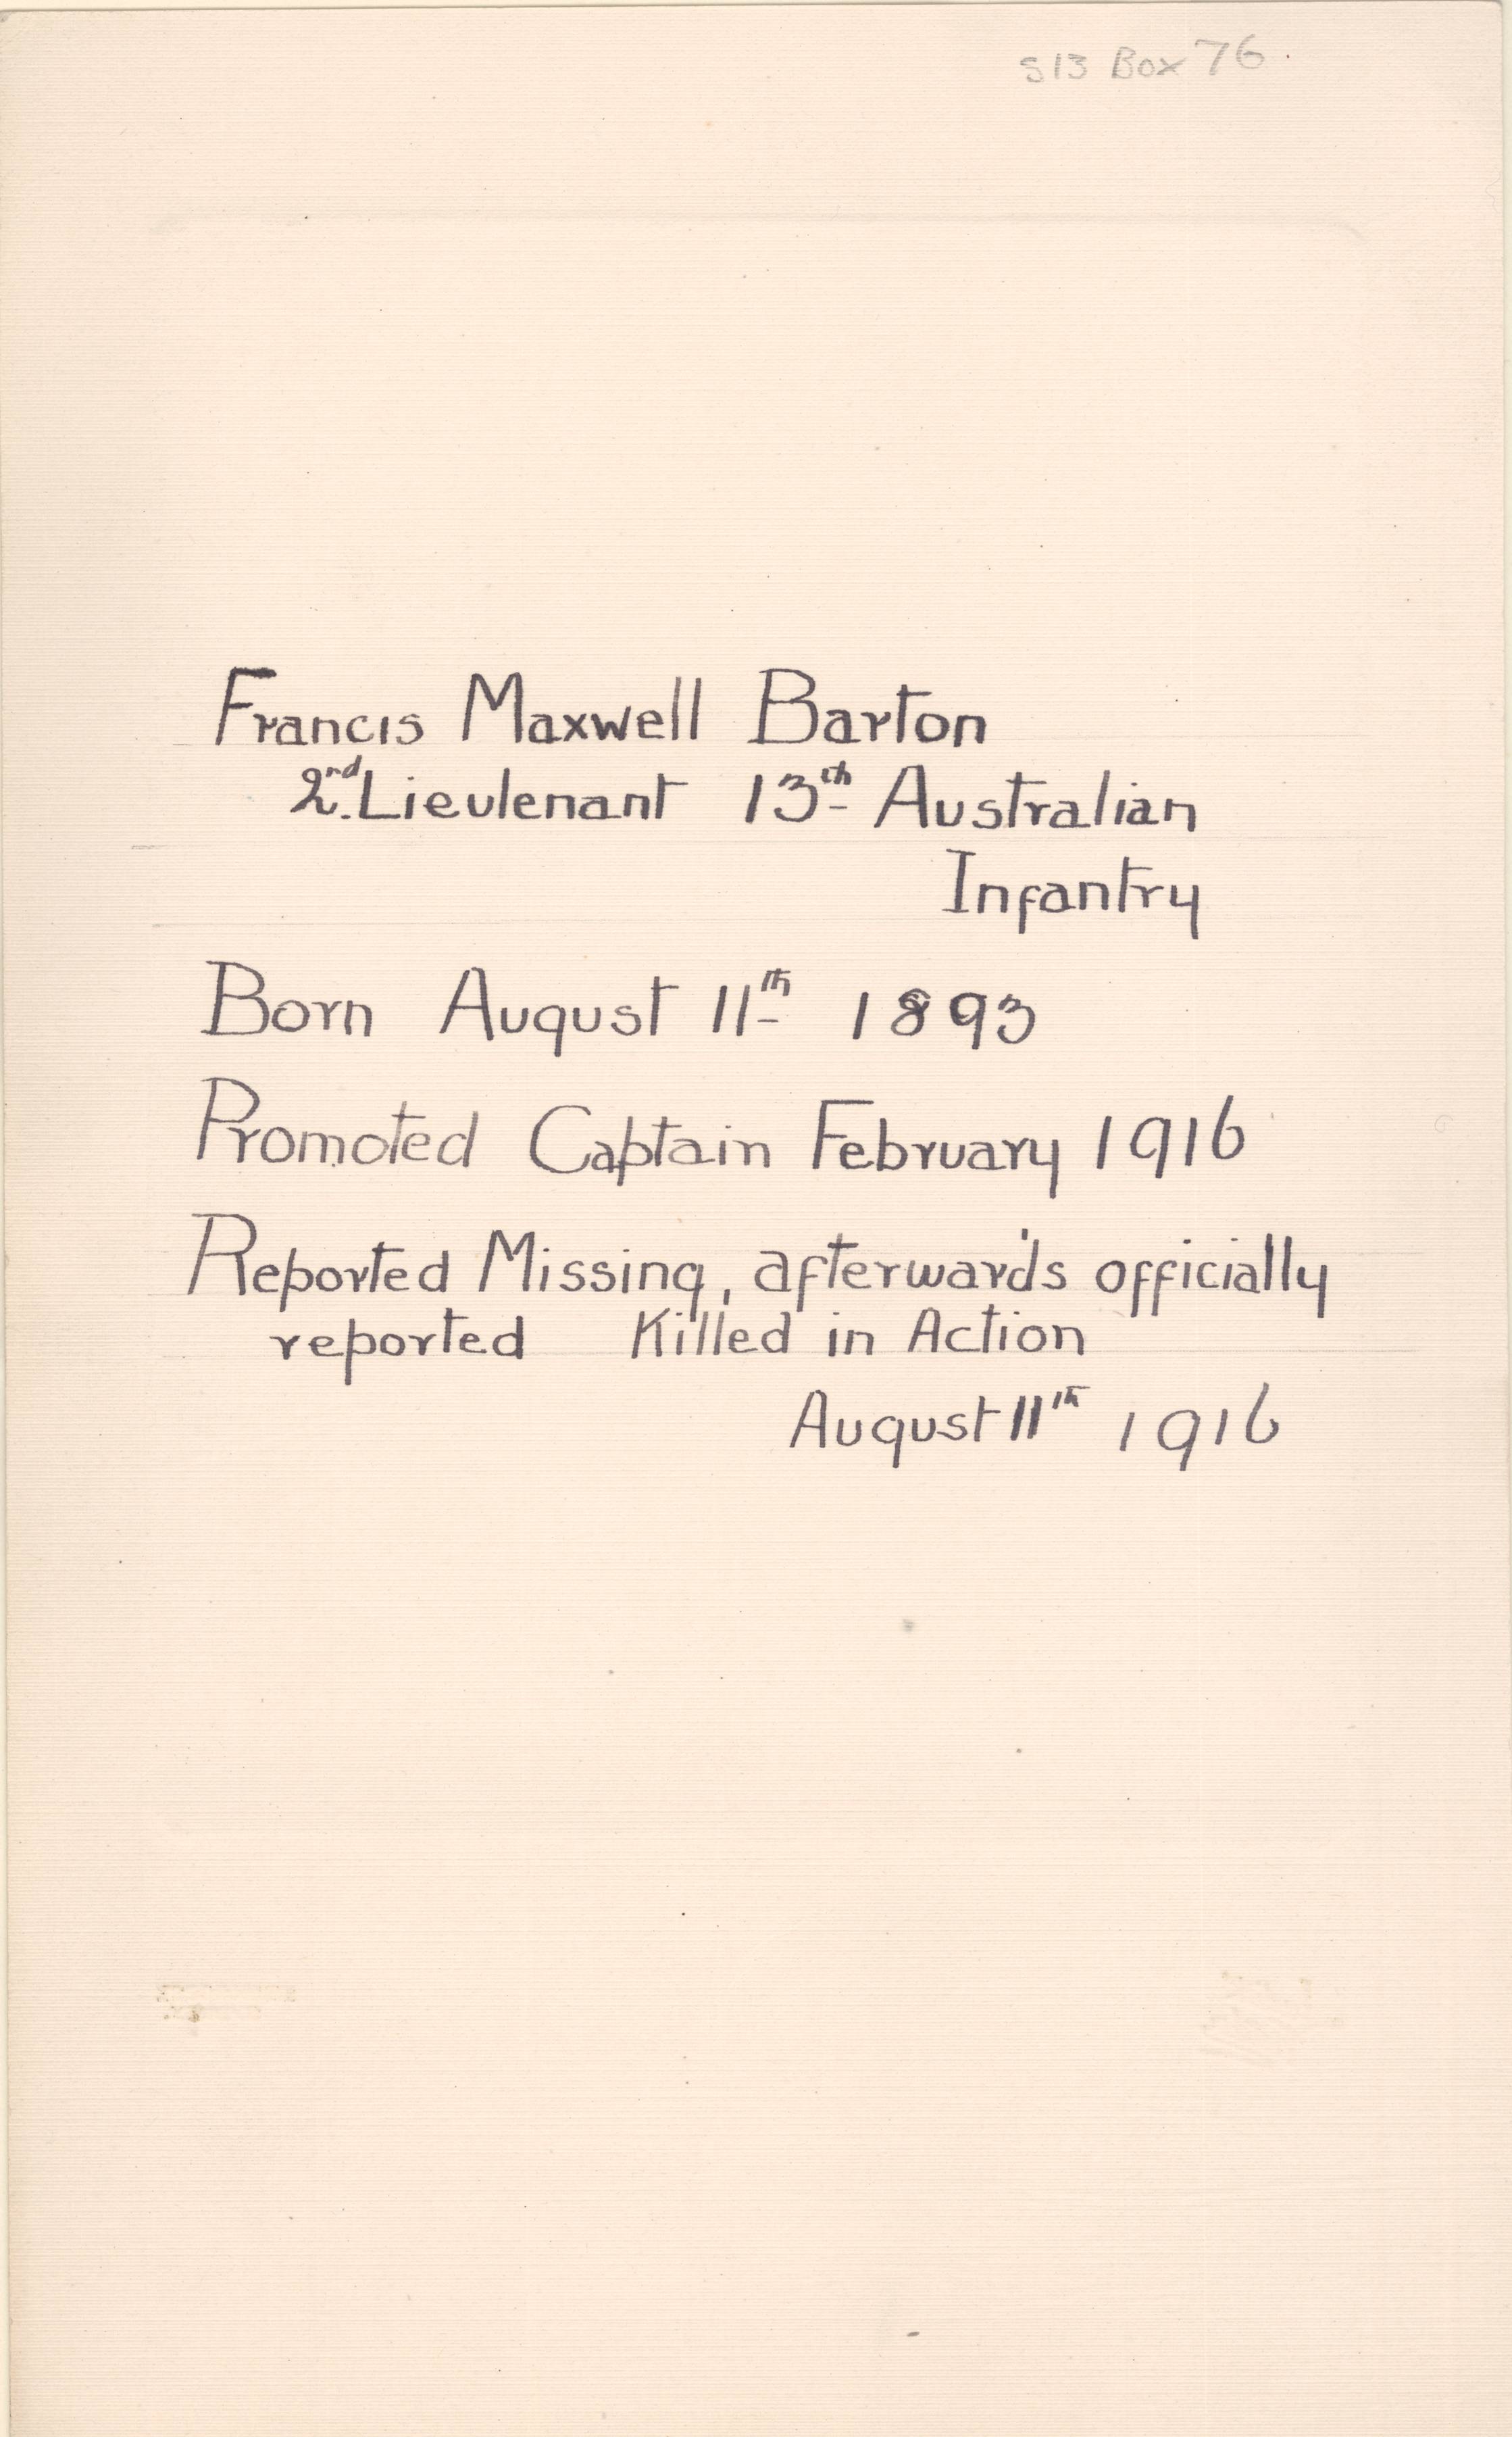 S13 Box 76.
Francis Maxwell Barton
2nd. Lieutenant 13th Australian
Infantry
Born August 11th 1893
Promoted Captain February 1916
Reported Missing, afterwards officially
reported Killed in Action
August 11th 1916